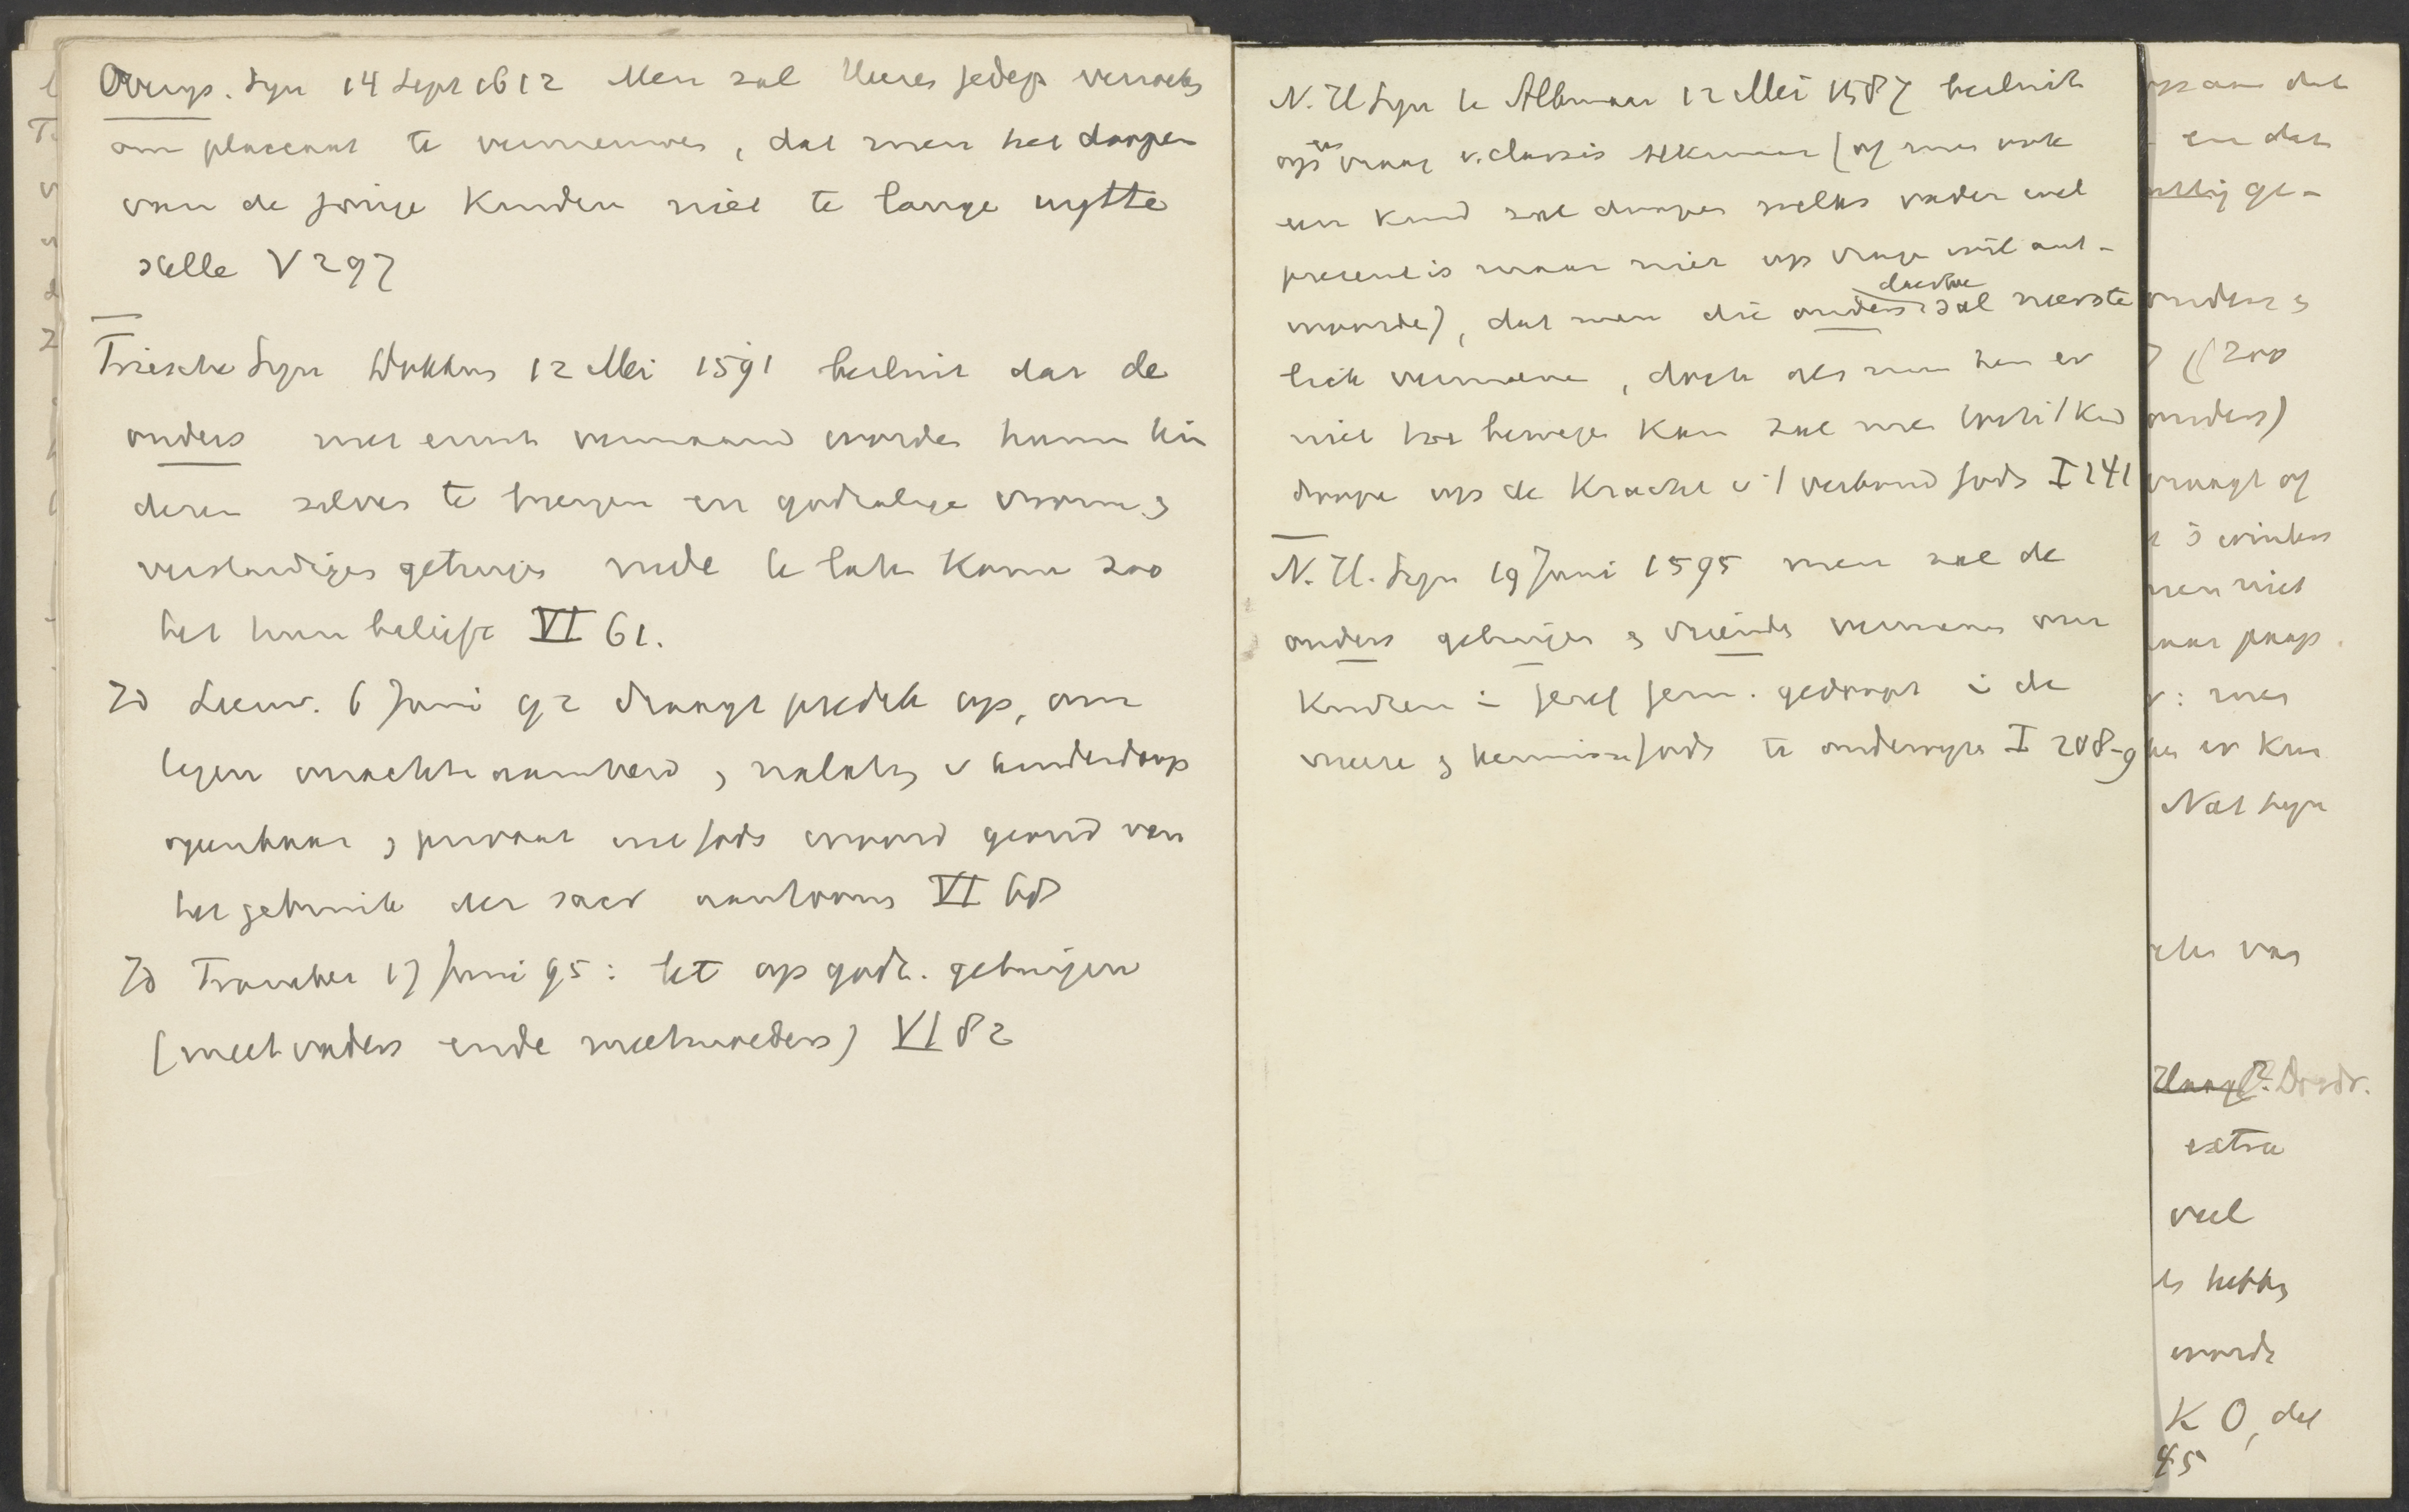 Overys. Syn 14 Sept 1612 Men zal Heeren gedep. versoeken
om placcaat te vernieuwen, dat men het doopen
van de jonge Kinder niet te lange uytte
stelle V 297
Friesche Syn Dokkum 12 Mei 1591 besluit dat de
ouders met ernst vermaand worden hunne kin
deren selver te brengen en godzalige vrome en
verstandige getuigen mede te laten komen zoo
het hun belieft VI 61.
Id Leeuw. 6 Juni 92 draagt predik op, om
tegen verachte en nalaten v kinderdoop
openbaar en privaat uit Gods woord grond van
het gebruik der sacr aan te toonen VI 68
Id Franeker 17 Juni 95: let op godz. getuigen
(meetvaders ende meetmoeders) VI 82
N. H Syn te Alkmaar 12 Mei 1587 besluit
op vraag v. classis Alkmaar (of men ook
een kind zal doopen welks vader wel
present is maar niet op vrage wil ant-
woorde), dat men die ouders daertoe zal neerste
lick vermane, doch als men hen er
niet toe bewege kan zal men 't kind
doope op de Kracht v 't verbond Gods I 141
N. H. Syn 19 Juni 1595 men zal de
ouders getuigen en vrienden vermanen om
Kindren in geref gem. gedoopt in de
vreese en kennisse Gods te onderwyze I 208-9
op aan dat
en dat
ge-
ouders en
(zoo
ouders)
vraagt of
men niet
paap.
: men
er kan
Nat Syn
van
Dordr.
extra
veel
hebben
worde
K O, dat
45